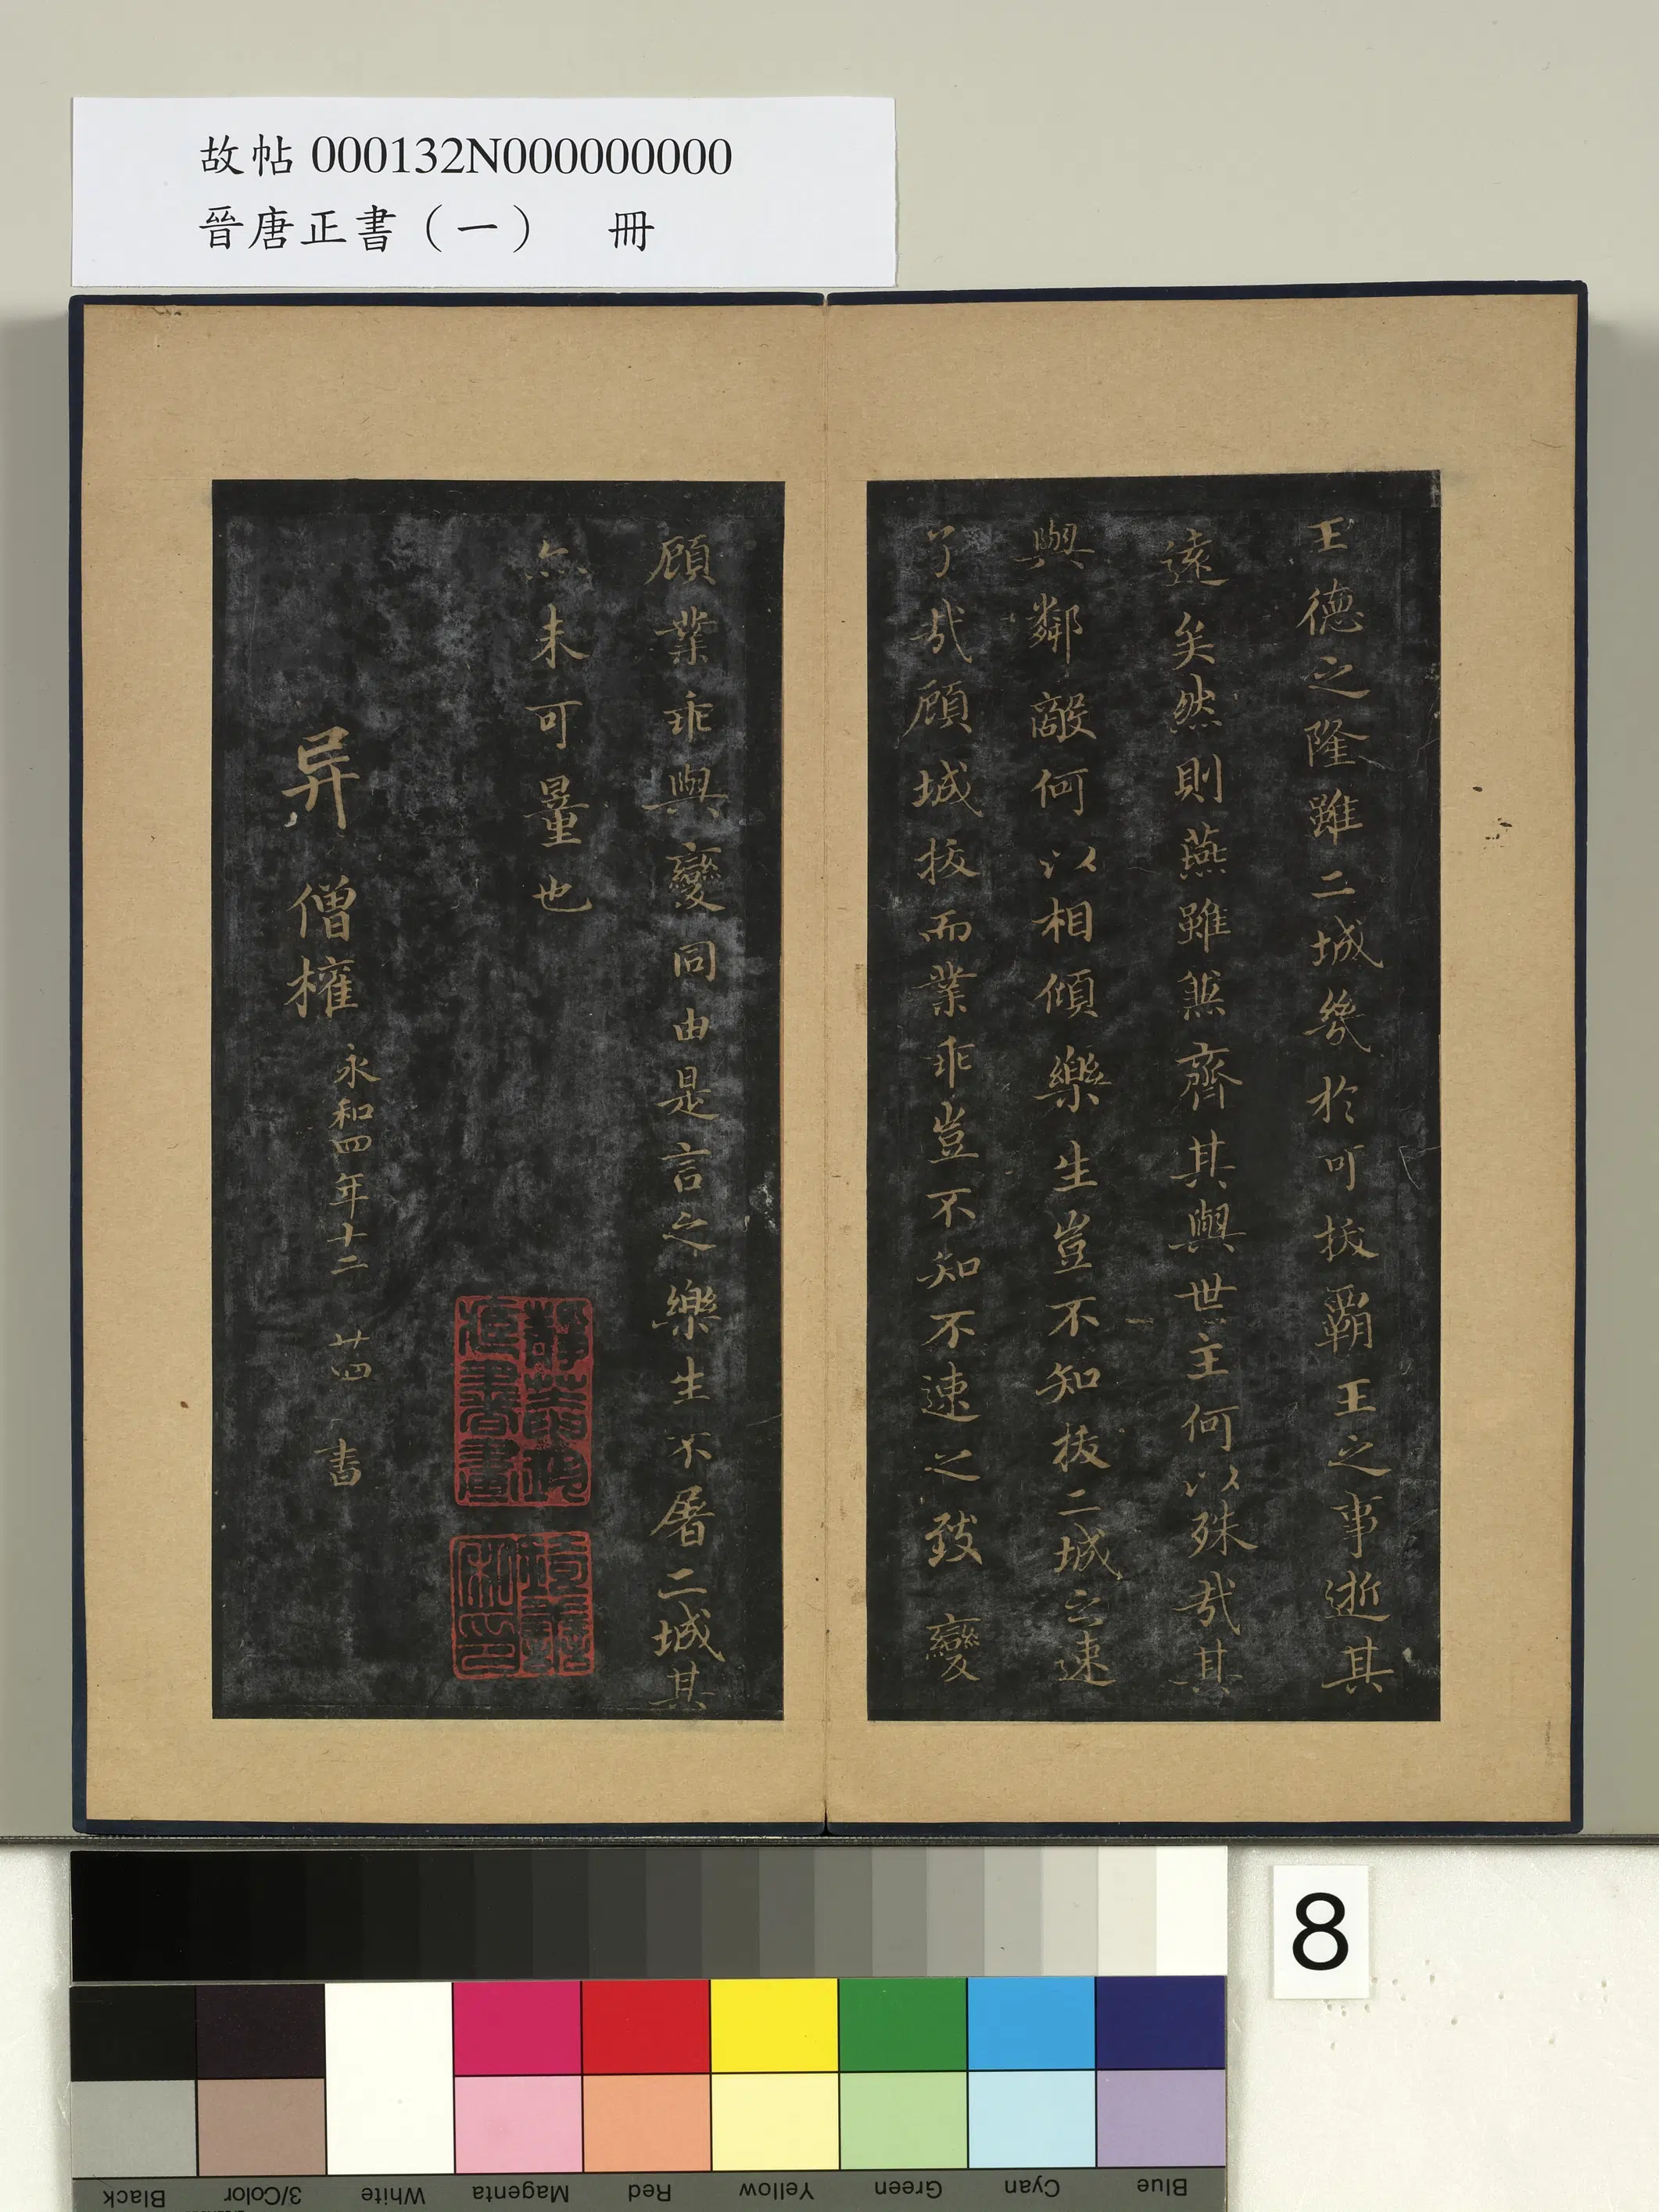 故帖 000132N000000000
晉唐正書（一） 冊
王德之隆雖二城幾於可拔霸王之事逝其
遠矣然則燕雖兼齊其與世主何以殊哉其
與鄰敵何以相傾樂生豈不知拔二城之速
了哉顧城拔而業乖豈不知不速之致變
顧業乖與變同由是言之樂生不屠二城其
亦未可量也
异 僧權 永和四年十二 廿四 書
8
Blue Cyan Green Yellow Red Magenta White 3/Color Black